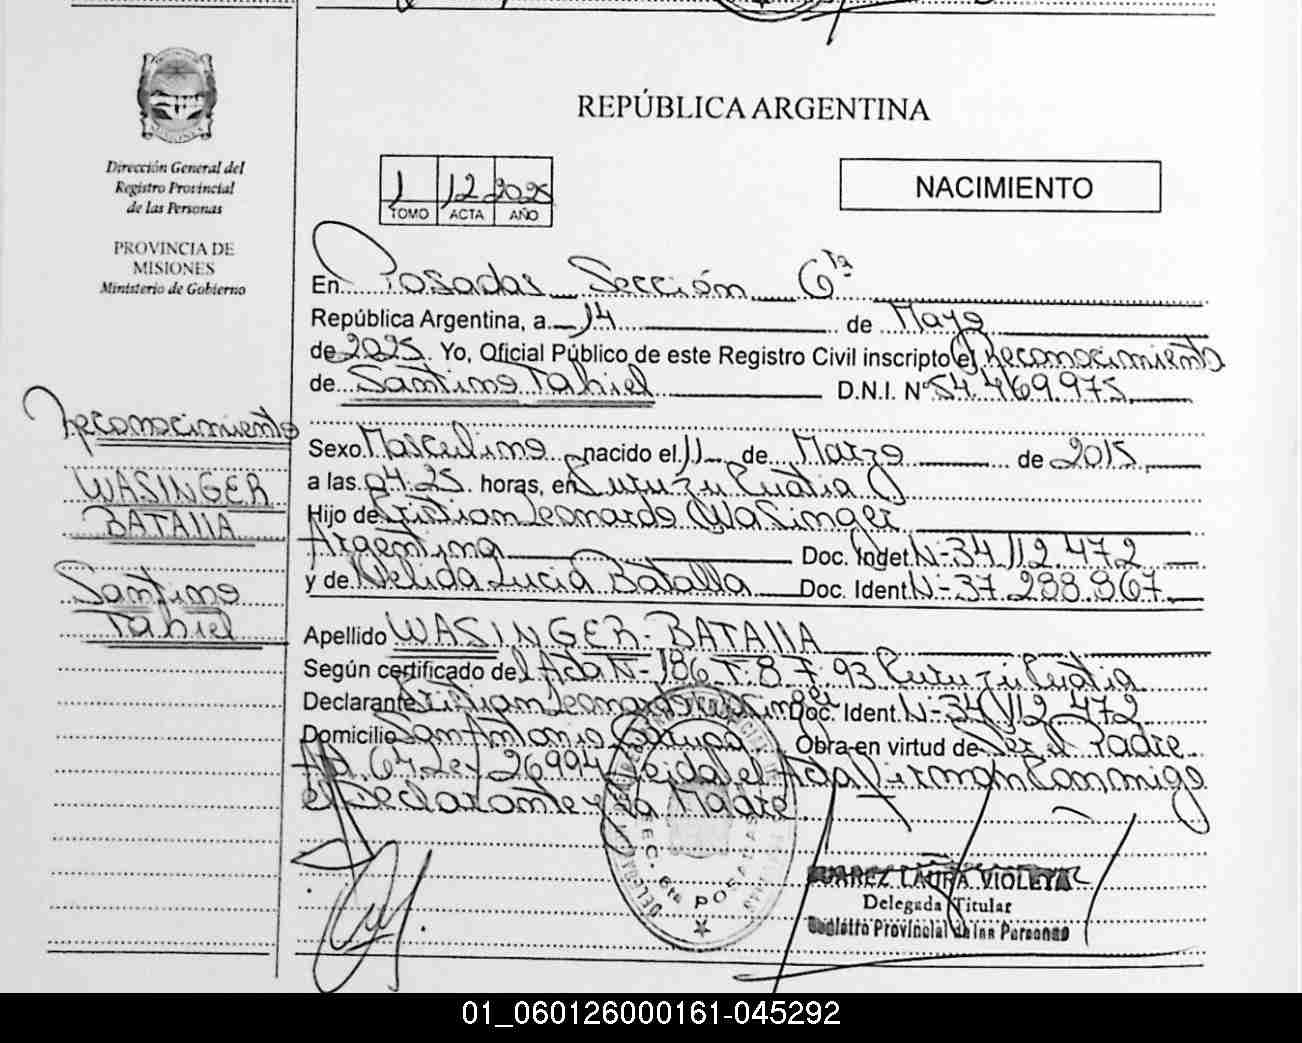 REPÚBLICA ARGENTINA
Dirección General del
Registro Provincial
de las Personas
PROVINCIA DE
MISIONES
Ministerio de Gobierno
1 12 2025
TOMO ACTA AÑO
NACIMIENTO
En Posadas Sección 6ta
República Argentina, a 14 de Mayo
de 2025. Yo, Oficial Público de este Registro Civil inscripto el Reconocimiento
de Santino Tahiel D.N.I. Nº 54.469.975
Reconocimiento
WASINGER
BATALLA
Santino
Tahiel
Sexo Masculino nacido el 11 de Marzo de 2015
a las 04.25. horas, en Curuzú Cuatiá
Hijo de Cristian Leonardo Wasinger
Argentina Doc. Indet N-34.112.472
y de Nelida Lucia Batalla Doc. Ident N-37.288.867
Apellido WASINGER-BATALLA
Según certificado del Acta N-186 T: 8 F: 93 Curuzú Cuatiá
Declarante Cristian Leonardo Wasinger Doc. Ident. N-34.112.472
Domicilio San Antonio Obra en virtud de Ser el Padre
Ad. 64 Ley 26994 Leida el Acta Firman Conmigo
el Declarante y la Madre
SEC. 6ta POSADAS
SUAREZ LAURA VIOLETA
Delegada Titular
Registro Provincial de las Personas
01_060126000161-045292